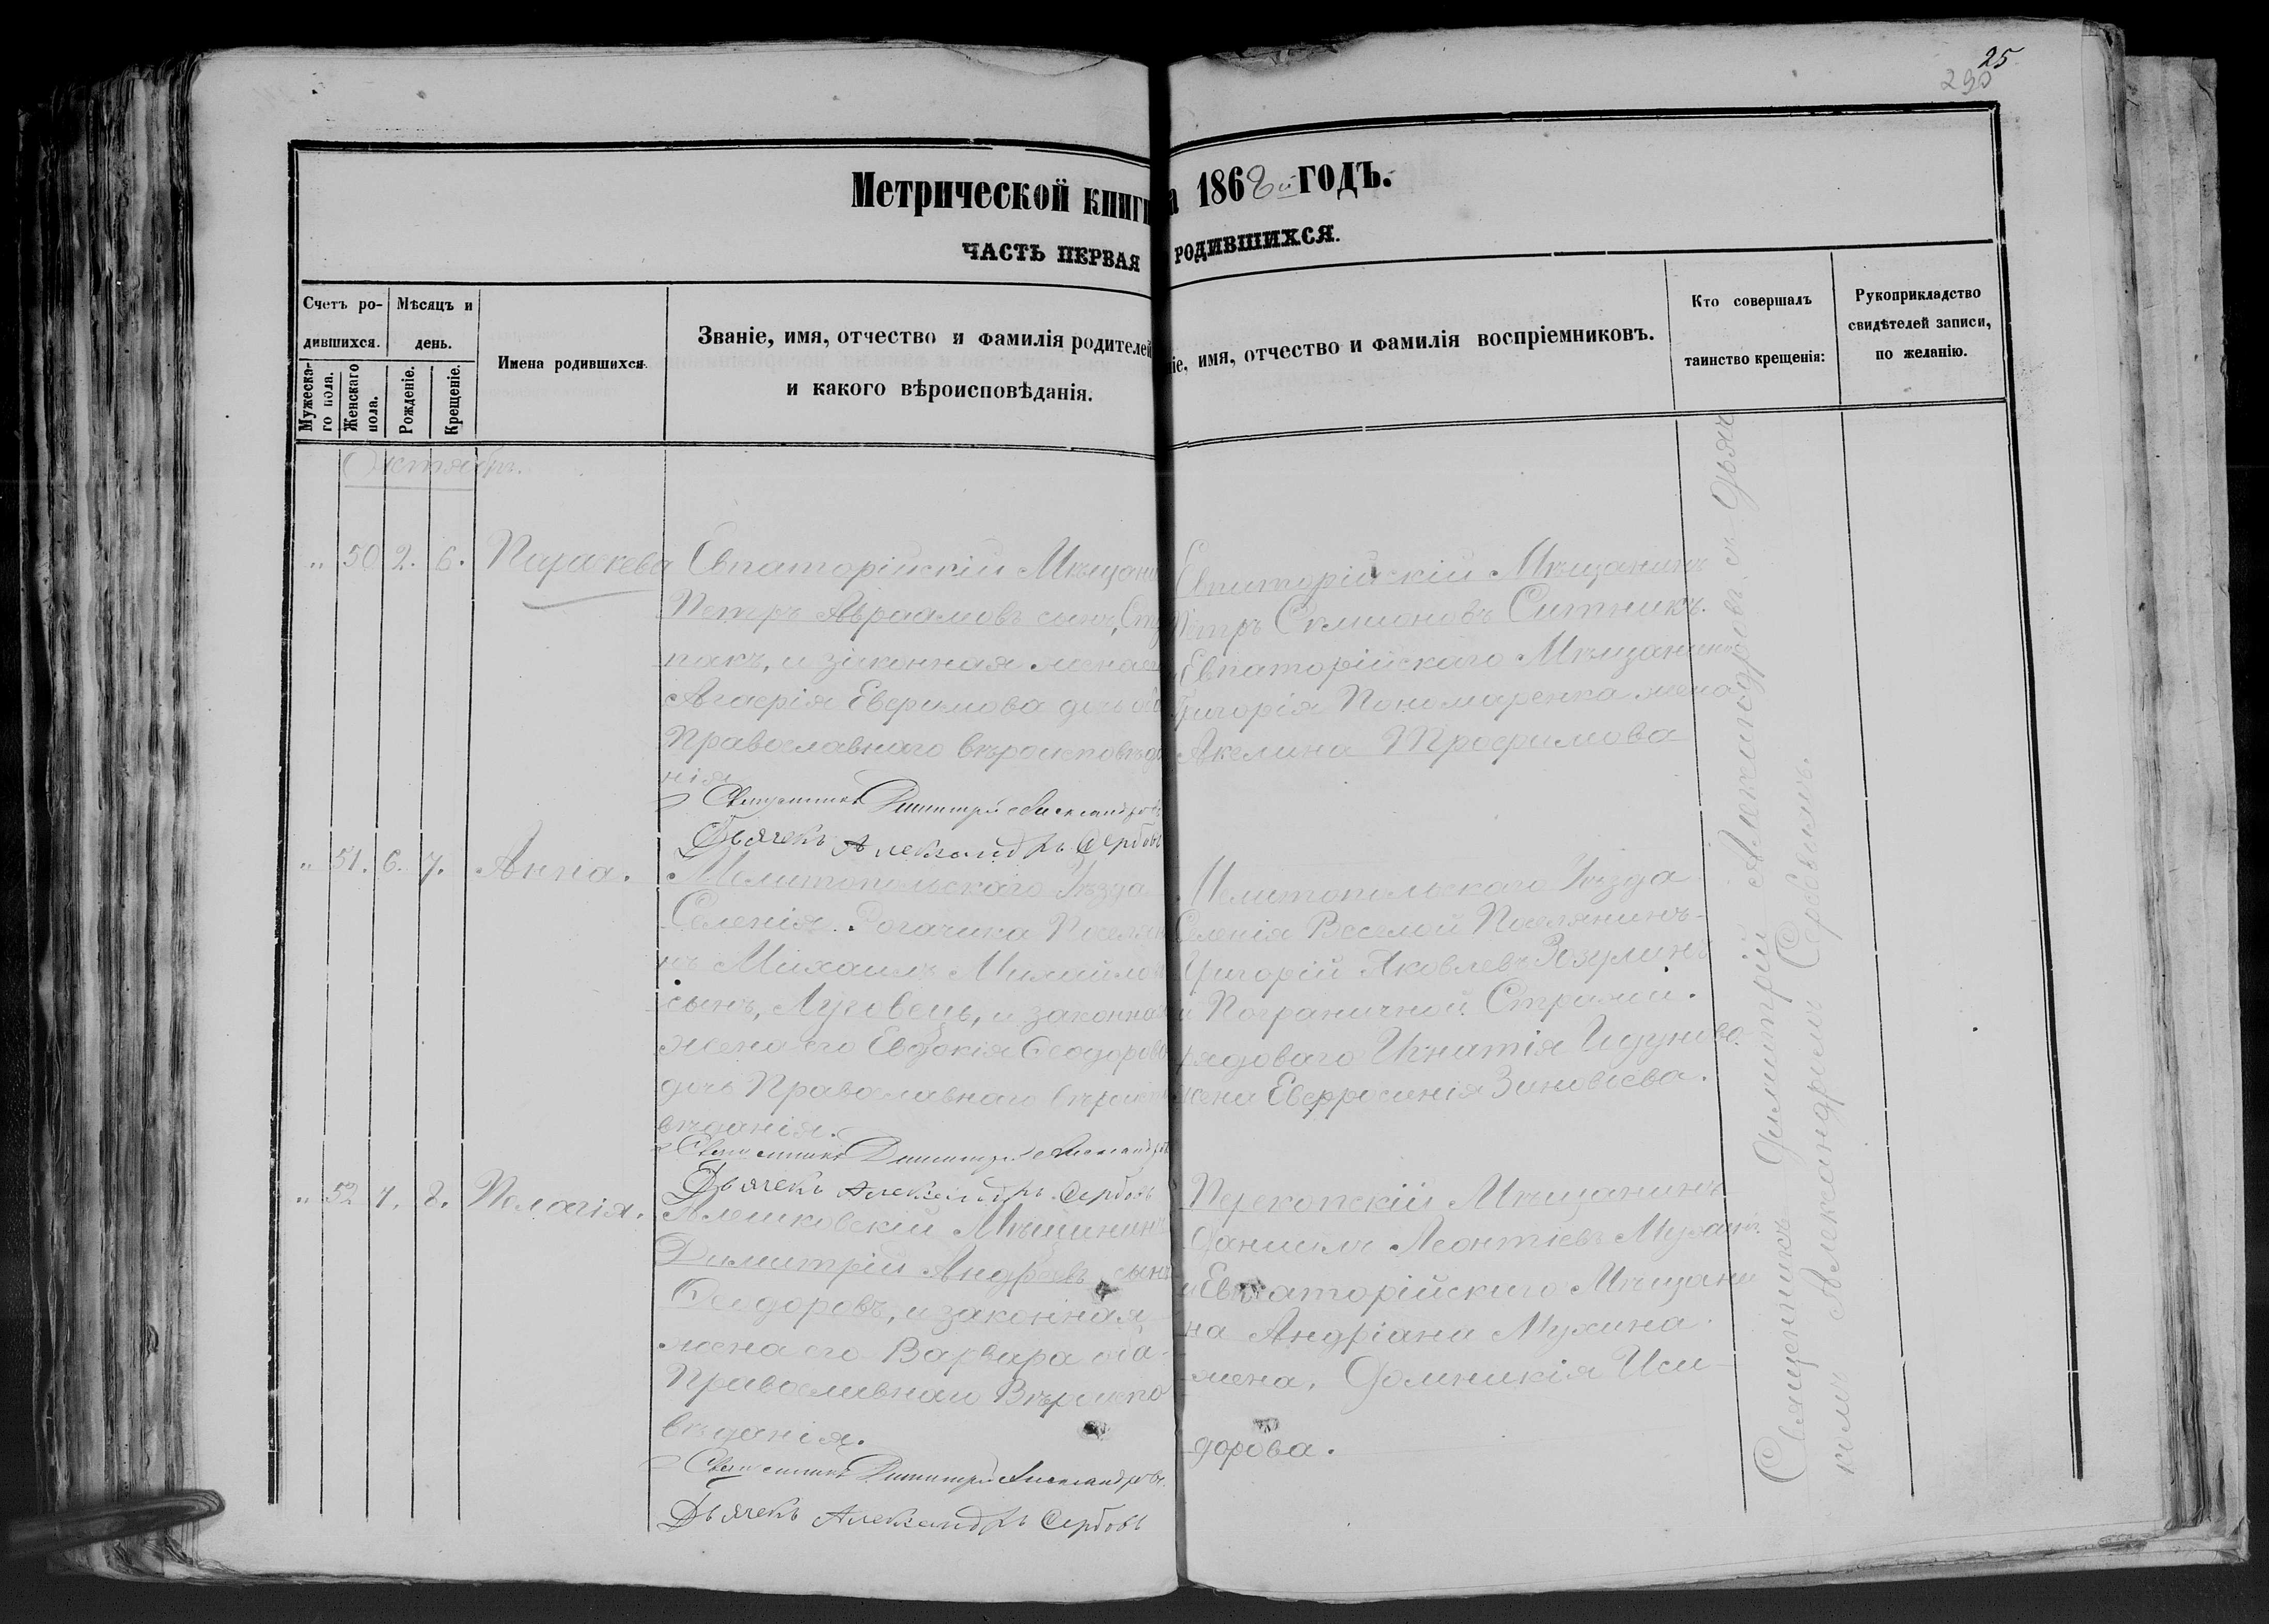 25
290
Метрической книги
а 1868й годъ.
ЧАСТЬ ПЕРВАЯ
РОДИВШИХСЯ.
Счетъ ро-
дившихся.
Мужеска-
го пола.
Женскаго
пола.
Мѣсяцъ и
день.
Рожденіе.
Крещеніе.
Имена родившихся.
Званіе, имя, отчество и фамилія родителей
и какого вѣроисповѣданія.
ніе, имя, отчество и фамилія воспріемниковъ.
Кто совершалъ
таинство крещенія:
Рукоприкладство
свидѣтелей записи,
по желанію.
Октябрь.
" 50 2. 6. Параскева
Евпаторійскій Мѣщани
Петръ Авраамовъ сынъ, Сту
пакъ, и законная жена его
Агафія Евфимова дочь оба
Православнаго вѣроисповѣда
нія
Священникъ Димитрій Александровъ
Дьячекъ Александръ Сербовъ
Евпаторійскій Мѣщанинъ
Петръ Симионовъ Ситникъ.
и Евпаторійскаго Мѣщанина
Григорія Пономаренка жена
Акелина Трофимова
" 51. 6. 7. Анна.
Мелитопольскаго Уѣзда
Селенія Рогачика Поселян
нъ Михаилъ Михайлов
сынъ, Луговецъ, и законная
жена его Евдокія Феодорова
дочь Православнаго вѣроиспо
вѣданія.
Священникъ Димитрій Александровъ
Дьячекъ Александръ Сербовъ
Мелитопольскаго Уѣзда
Селенія Веселой Поселянинъ
Григорій Яковлевъ Розулинъ
и Пограничной Стражи.
рядоваго Игнатія
жена Евфросинія Зиновіева.
" 52 7. 8. Пелагія.
Алешковскій Мѣщанинъ
Димитрій Андреевъ сынъ
Феодоровъ, и законная
жена его Варвара оба
Православнаго Вѣроиспо
вѣданія.
Священникъ Димитрій Александровъ
Дьячекъ Александръ Сербовъ
Перекопскій Мѣщанинъ
Даніилъ Леонтіевъ
и Евпаторійскаго Мѣщани
на Андріана Мухина
жена, Домникія Иси-
дорова.
Священникъ Димитрій Александровъ. и Дьяч
комъ Александромъ Сербовымъ.